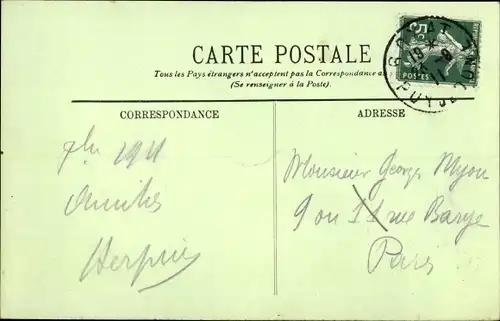 CARTE POSTALE
Tous les Pays étrangers n'acceptent pas la Correspondance au
(Se renseigner à la Poste).
CORRESPONDANCE
ADRESSE
1911
Amitiés
Monsieur Georges Myon
9 ou 11 rue Barye
Paris